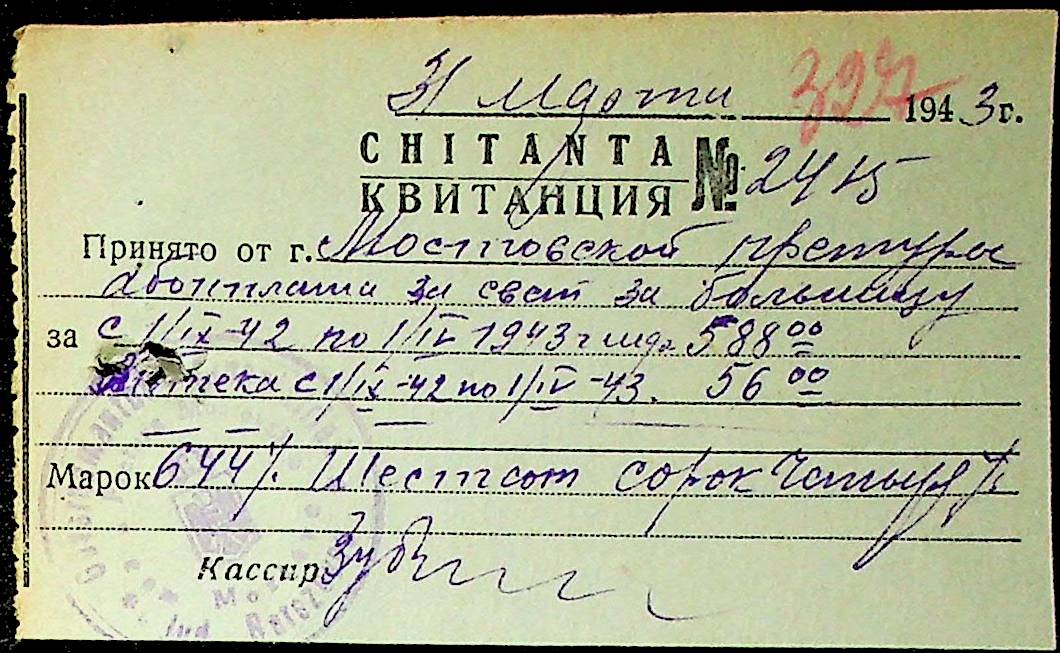 31 марта 327 1943 г.
CHITANTA
КВИТАНЦИЯ № 2415
Принято от г. Мостовской претуры
Абонплата за свет за больницу
за с 1/IX-42 по 1/IV 1943 г 588 00
Аптека с 1/IX-42 по 1/IV-43. 56 00
Марок 644 Шестсот сорок четыре
Кассир